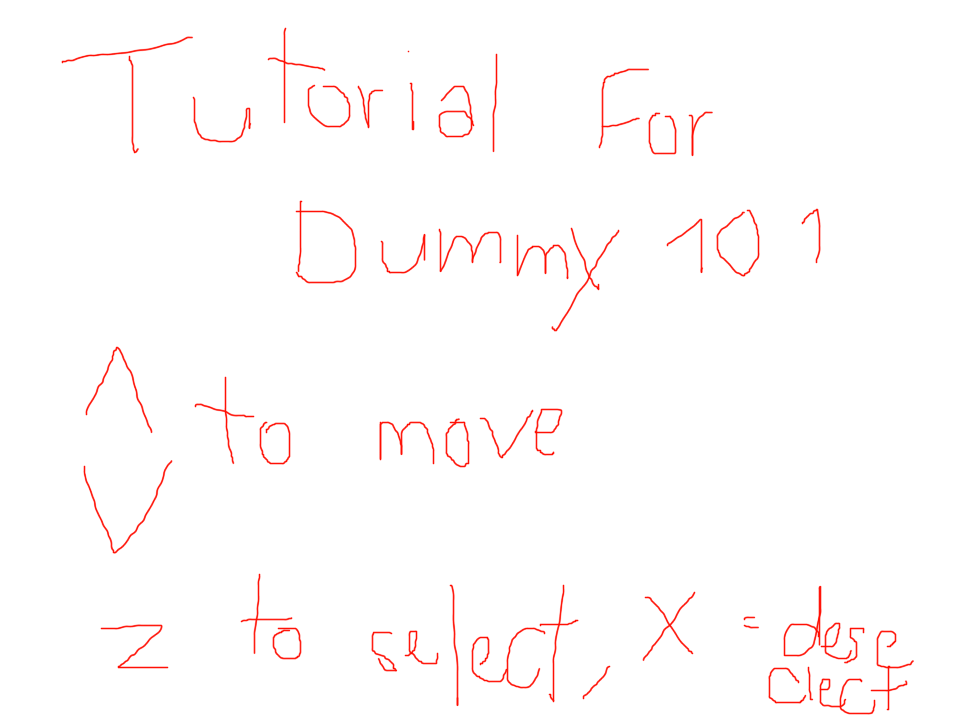 Tutorial For
Dummy 101
to move
z to select, X = dese
lect